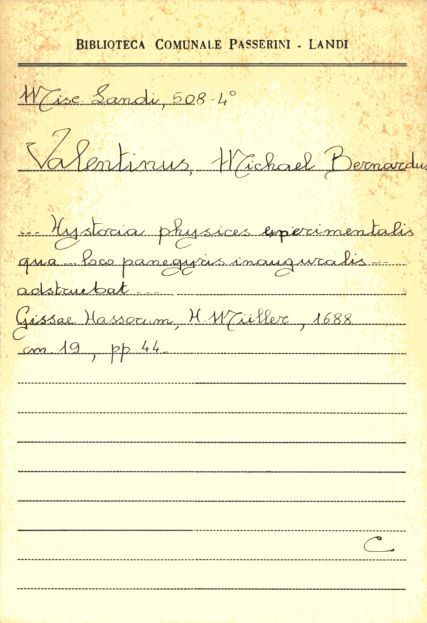 BIBLIOTECA COMUNALE PASSERINI - LANDI
Misc. Landi, 508-4°
Valentinus, Michael Bernardus
... Hystoria physices experimentalis
qua ... loco panegyris inauguralis ...
adstruebat ...
Gissae Hassorum, H. Müller, 1688
cm. 19, pp 44.
C